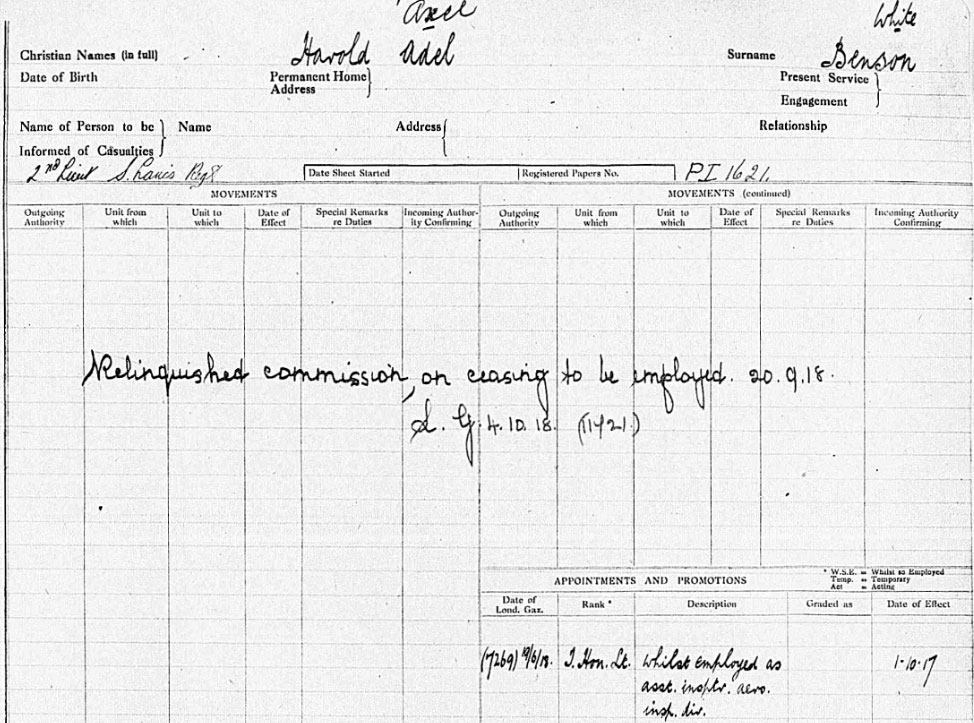 Axel White
Christian Names (in full) Harold Adel Surname Benson
Date of Birth Permanent Home Address Present Service
Engagement
Name of Person to be Informed of Casualties Name Address Relationship
2nd Lieut S. Lancs Regt Date Sheet Started Registered Papers No. P.I 1621.
MOVEMENTS MOVEMENTS (continued)
Outgoing Authority Unit from which Unit to which Date of Effect Special Remarks re Duties Incoming Authority Confirming Outgoing Authority Unit from which Unit to which Date of Effect Special Remarks re Duties Incoming Authority Confirming
Relinquished commission, on ceasing to be employed. 20.9.18.
L. G. 4.10.18. (11721)
APPOINTMENTS AND PROMOTIONS
* W.S.E. = Whilst so Employed
Temp. = Temporary
Act = Acting
Date of Lond. Gaz. Rank * Description Graded as Date of Effect
(7269) 19/6/18. T. Hon. Lt. whilst employed as 1-10-17
asst. insptr. aero.
insp. dir.